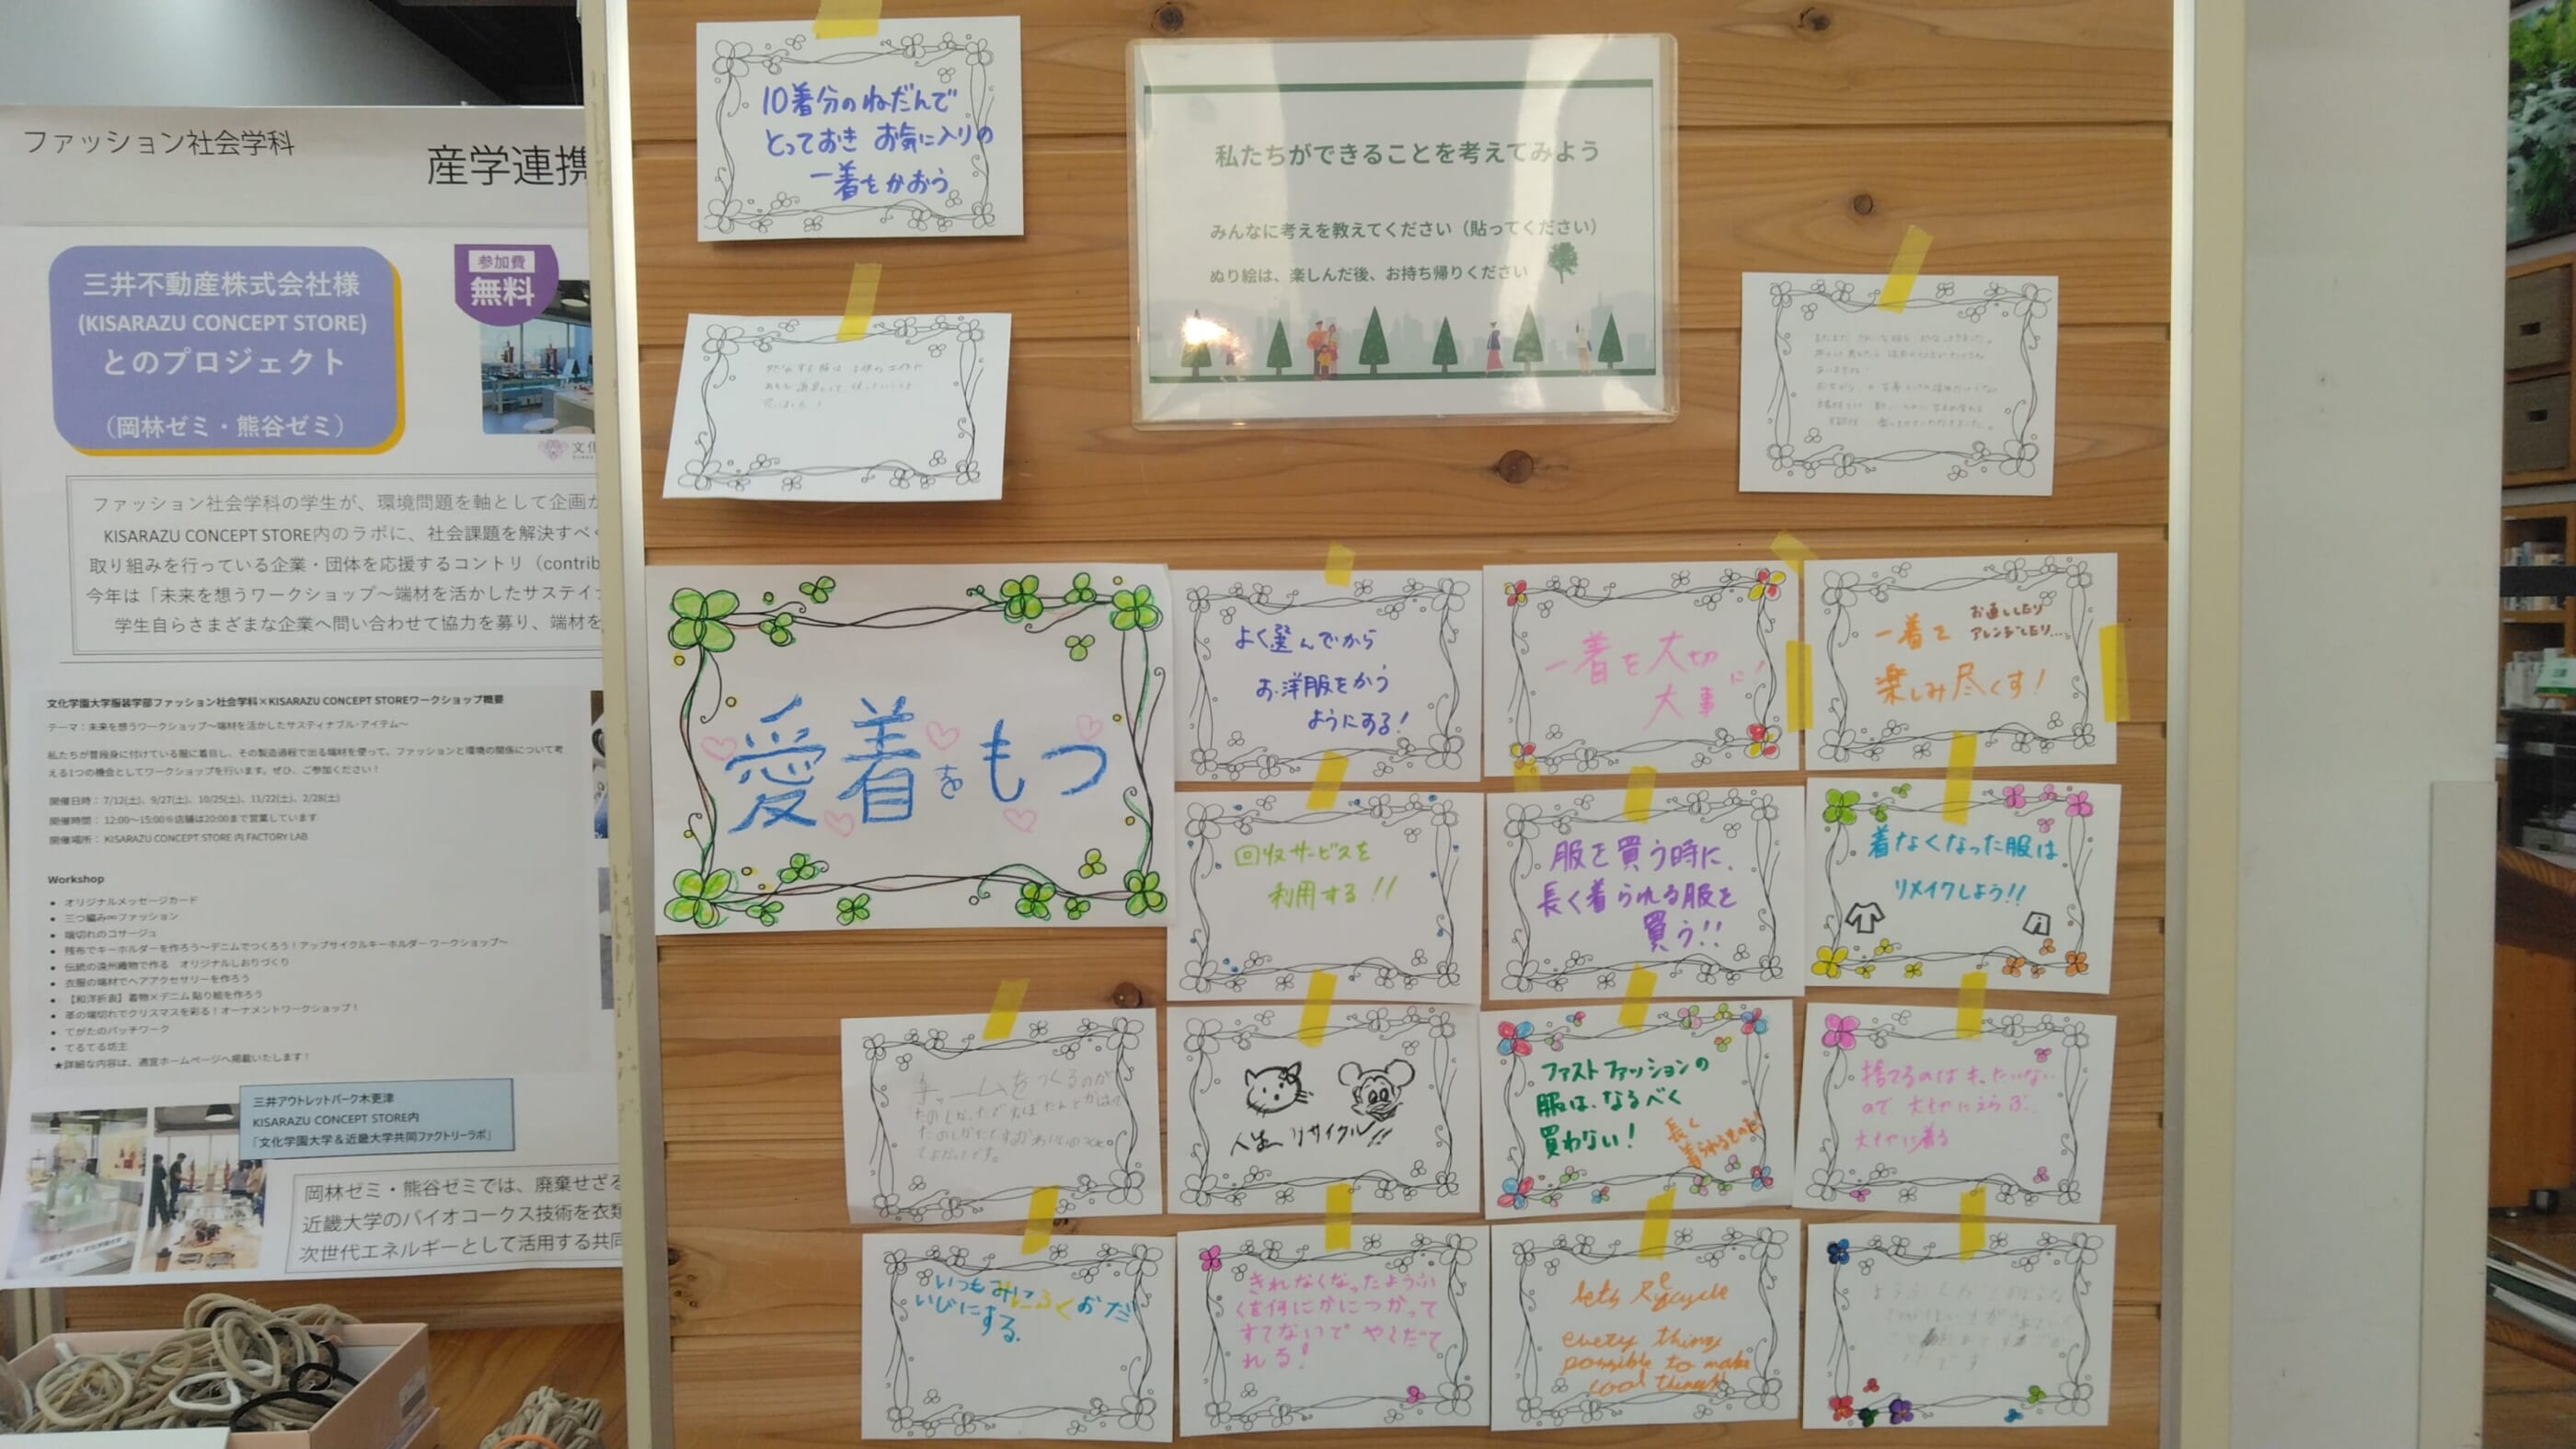 ファッション社会学科
産学連携
三井不動産株式会社様
(KISARAZU CONCEPT STORE)
とのプロジェクト
（岡林ゼミ・熊谷ゼミ）
参加費
無料
ファッション社会学科の学生が、環境問題を軸として企画
KISARAZU CONCEPT STORE内のラボに、社会課題を解決すべ
取り組みを行っている企業・団体を応援するコントリ（contrib
今年は「未来を想うワークショップ～端材を活かしたサステイ
学生自らさまざまな企業へ問い合わせて協力を募り、端材を
文化学園大学服装学部ファッション社会学科×KISARAZU CONCEPT STOREワークショップ概要
テーマ：未来を想うワークショップ～端材を活かしたサスティナブル・アイテム～
私たちが普段身に付けている服に着目し、その製造過程で出る端材を使って、ファッションと環境の関係について考
える1つの機会としてワークショップを行います。ぜひ、ご参加ください！
開催日時： 7/12(土)、9/27(土)、10/25(土)、11/22(土)、2/28(土)
開催時間： 12:00～15:00※店舗は20:00まで営業しています
開催場所： KISARAZU CONCEPT STORE 内 FACTORY LAB
Workshop
• オリジナルメッセージカード
• 三つ編み∞ファッション
• 端切れのコサージュ
• 残布でキーホルダーを作ろう～デニムでつくろう！アップサイクルキーホルダー ワークショップ～
• 伝統の遠州織物で作る　オリジナルしおりづくり
• 衣服の端材でヘアアクセサリーを作ろう
• 【和洋折衷】着物×デニム 貼り絵を作ろう
• 革の端切れでクリスマスを彩る！オーナメントワークショップ！
• てがたのパッチワーク
• てるてる坊主
★詳細な内容は、適宜ホームページへ掲載いたします！
三井アウトレットパーク木更津
KISARAZU CONCEPT STORE内
「文化学園大学＆近畿大学共同ファクトリーラボ」
岡林ゼミ・熊谷ゼミでは、廃棄せざる
近畿大学のバイオコークス技術を衣類
次世代エネルギーとして活用する共同
10着分のねだんで
とっておき お気に入りの
一着をかおう
私たちができることを考えてみよう
みんなに考えを教えてください（貼ってください）
ぬり絵は、楽しんだ後、お持ち帰りください
愛着をもつ
よく選んでから
お洋服をかう
ようにする!
一着を大切
大事に!
一着を お直ししたり
アレンジしたり...
楽しみ尽くす!
回収サービスを
利用する!!
服を買う時に、
長く着られる服を
買う!!
着なくなった服は
リメイクしよう!!
チャームをつくるのが
人生リサイクル!!
ファストファッションの
服は、なるべく
買わない!
長く
捨てるのはもったいない
ので 大切にえらぶ。
大切に着る
いつもみにふくおだ
いじにする.
きれなくなったようふ
くを何にかにつかって
すてないで やくだて
れる!
lets Recycle
every thing
possible to make
cool things!!